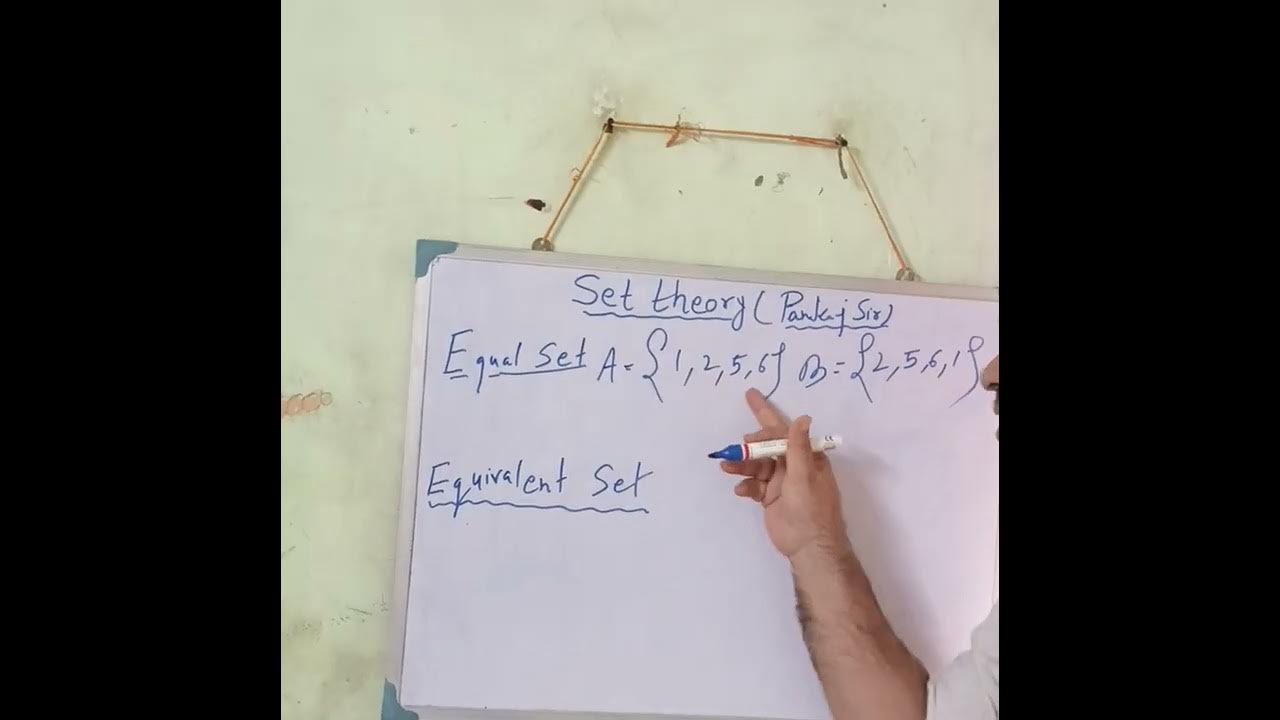 Set theory ( Pankaj Sir)
Equal Set A = {1, 2, 5, 6} B = {2, 5, 6, 1}
Equivalent Set